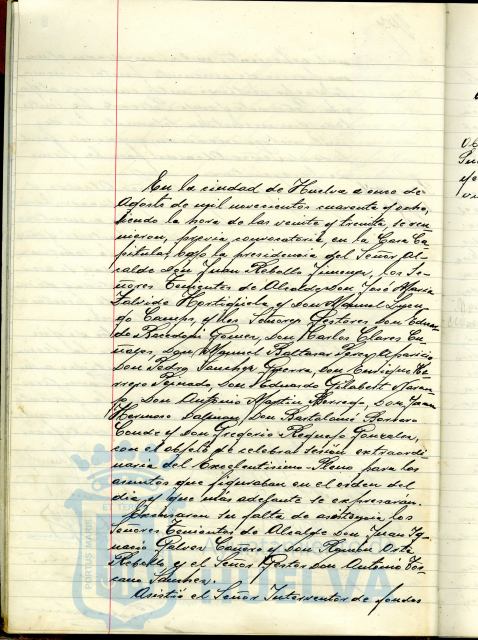 En la ciudad de Huelva a once de
Agosto de mil novecientos cuarenta y ocho,
siendo la hora de las veinte y treinta, se reu-
nieron, previa convocatoria, en la Casa Ca-
pitular bajo la presidencia del Señor Al-
calde Don Juan Rebollo Jimenez, los Se-
ñores Tenientes de Alcalde, Don José María
Zalvide y Don Manuel
Camps, y los Señores Gestores Don Eduar-
do Gomez, Don Carlos Clares
Don Manuel Baltasar Perez Aparicio
Don Pedro Sanchez Guerra, Don Enrique He-
rrejo Don Eduardo Gilabert
Don Antonio Martin Don Juan
Hermoso Don Bartolomé Barbero
Conde y Don Gregorio Requejo Gonzalez,
con el objeto de celebrar sesión extraordi-
naria del Excelentísimo Pleno para los
asuntos que figuraban en el orden del
día y que más adelante se expresarán.
Excusaron su falta de asistencia los
Señores Tenientes de Alcalde Don Juan Ig-
nacio Galvez y Don Ramón
Rebollo, y el Señor Gestor Don Antonio Tos-
cano Sanchez.
Asistió el Señor Interventor de fondos